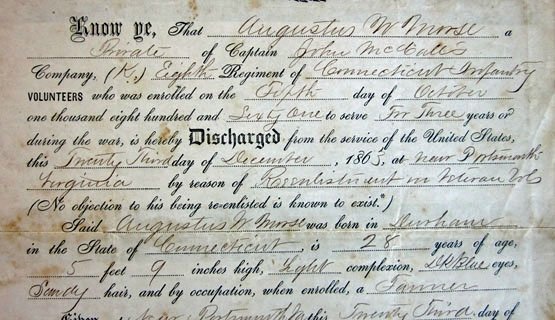 Know ye, That Augustus W Morse a
Private of Captain John McCall's
Company, (K,) Eighth Regiment of Connecticut Infantry
VOLUNTEERS who was enrolled on the Fifth day of October
one thousand eight hundred and Sixty One to serve For Three years or
during the war, is hereby Discharged from the service of the United States,
this Twenty Third day of December, 1863, at near Portsmouth
Virginia by reason of Reenlistment in Veteran Vols
(No objection to his being re-enlisted is known to exist.*)
Said Augustus W Morse was born in Durham
in the State of Connecticut, is 28 years of age,
5 feet 9 inches high, Light complexion, Dk Blue eyes,
Sandy hair, and by occupation, when enrolled, a Farmer
Given at Near Portsmouth Va this Twenty Third day of